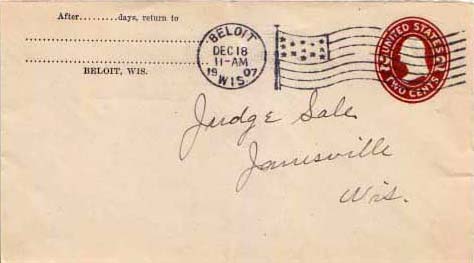 After.........days, return to
BELOIT, WIS.
BELOIT
DEC 18
11-AM
1907
WIS.
UNITED STATES
TWO CENTS
Judge Sale
Janesville
Wis.